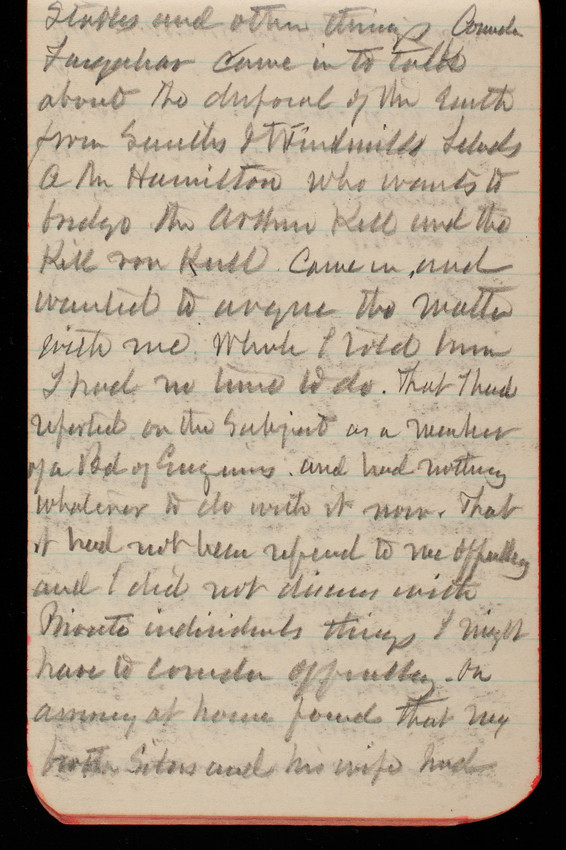 States and other things Comdr
Farquhar came in to talk
about the disposal of the Earth
from Smiths & Windmills Islds
A Mr Hamilton who wants to
bridge the Arthur Kill and the
Kill von Kull. Came in, and
wanted to argue the matter
with me. Which I told him
I had no time to do. That I had
reported on the Subject as a member
of a Bd of Engineers. and had nothing
whatever to do with it now. That
it had not been referred to me officially
and I did not discuss with
Private individuals things I might
have to consider officially. On
arriving at home found that my
brother Silas and his wife had